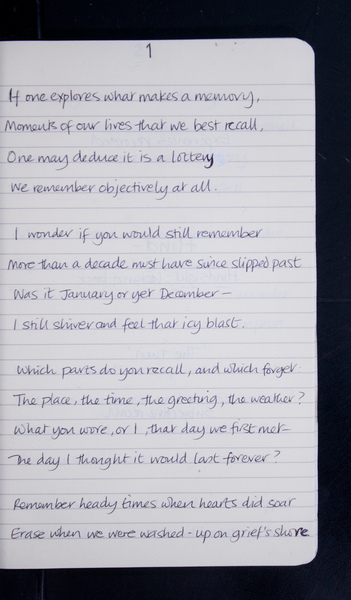 1
If one explores what makes a memory,
Moments of our lives that we best recall,
One may deduce it is a lottery
We remember objectively at all.
I wonder if you would still remember
More than a decade must have since slipped past
Was it January or yet December –
I still shiver and feel that icy blast.
Which parts do you recall, and which forget –
The place, the time, the greeting, the weather?
What you wore, or I, that day we first met –
The day I thought it would last forever?
Remember heady times when hearts did soar
Erase when we were washed-up on grief's shore